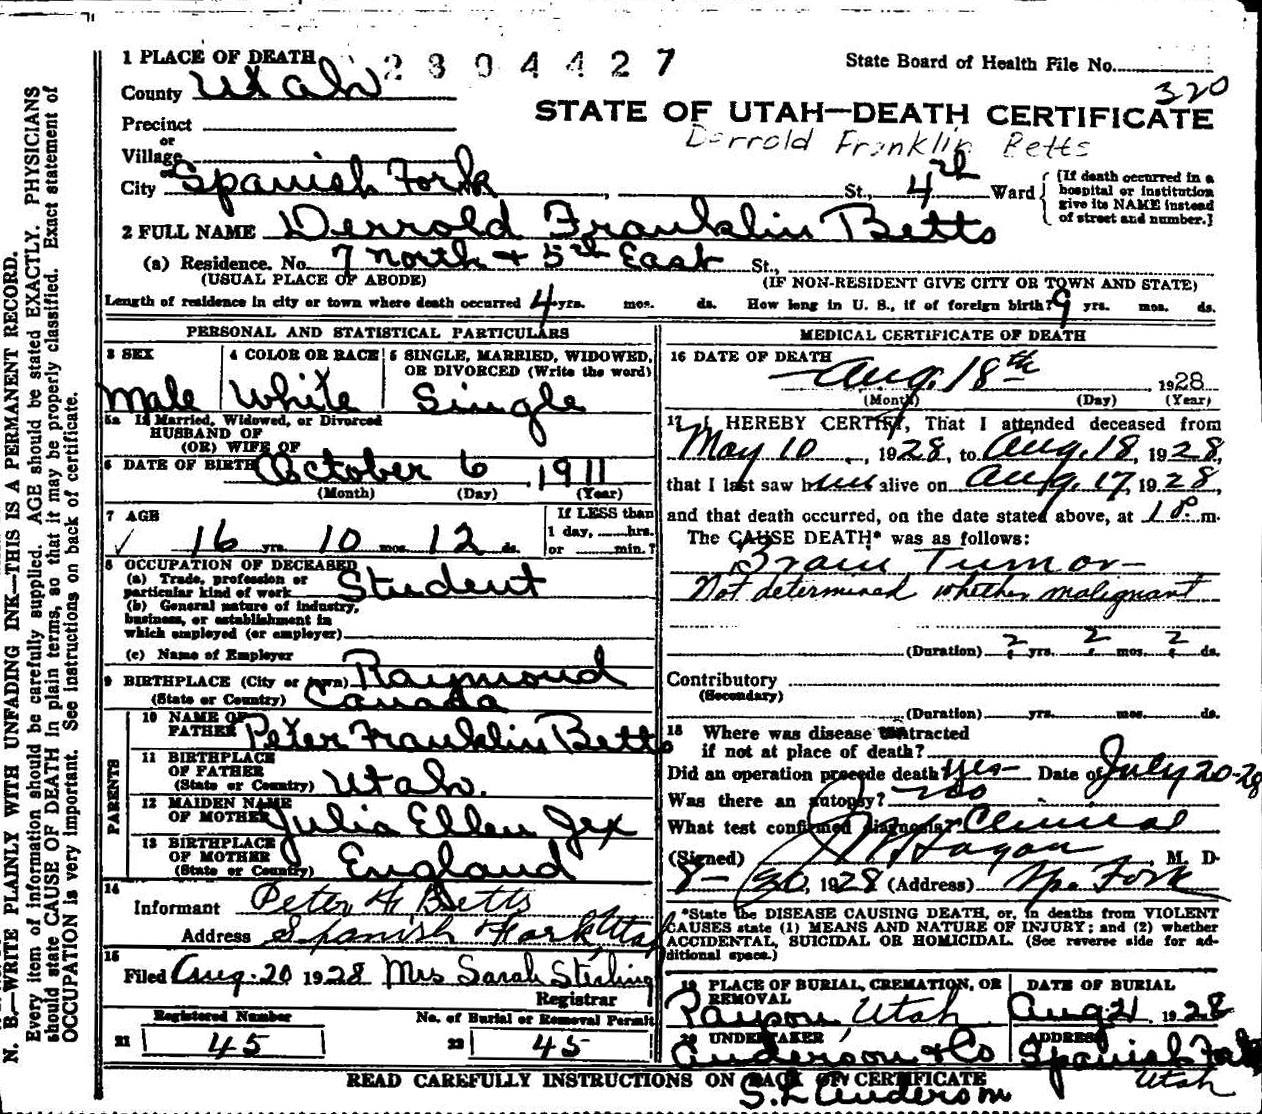 1 PLACE OF DEATH 2804427
State Board of Health File No.
County Utah
320
STATE OF UTAH—DEATH CERTIFICATE
Precinct
Derrold Franklin Betts
or
Village
City Spanish Fork, St., 4th Ward
[If death occurred in a
hospital or institution
give its NAME instead
of street and number.]
2 FULL NAME Derrold Franklin Betts
(a) Residence. No. 7 North + 5th East St.,
(USUAL PLACE OF ABODE) (IF NON-RESIDENT GIVE CITY OR TOWN AND STATE)
Length of residence in city or town where death occurred 4 yrs. mos. ds. How long in U. S., if of foreign birth? 9 yrs. mos. ds.
PERSONAL AND STATISTICAL PARTICULARS
3 SEX 4 COLOR OR RACE 5 SINGLE, MARRIED, WIDOWED,
OR DIVORCED (Write the word)
Male White Single
5a If Married, Widowed, or Divorced
HUSBAND OF
(OR) WIFE OF
6 DATE OF BIRTH October 6, 1911
(Month) (Day) (Year)
7 AGE
If LESS than
1 day, hrs.
or min.?
16 yrs. 10 mos. 12 ds.
8 OCCUPATION OF DECEASED
(a) Trade, profession or
particular kind of work Student
(b) General nature of industry,
business, or establishment in
which employed (or employer)
(c) Name of Employer
9 BIRTHPLACE (City or town) Raymond
(State or Country) Canada
PARENTS
10 NAME OF
FATHER Peter Franklin Betts
11 BIRTHPLACE
OF FATHER
(State or Country) Utah.
12 MAIDEN NAME
OF MOTHER Julia Ellen Jex
13 BIRTHPLACE
OF MOTHER
(State or Country) England
14
Informant Peter F. Betts
Address Spanish Fork, Utah
15
Filed Aug. 20 1928 Mrs Sarah Stirling
Registrar
Registered Number No. of Burial or Removal Permit
21 45 22 45
MEDICAL CERTIFICATE OF DEATH
16 DATE OF DEATH
Aug. 18th, 1928
(Month) (Day) (Year)
17 I HEREBY CERTIFY, That I attended deceased from
May 10, 1928, to Aug. 18, 1928,
that I last saw him alive on Aug. 17, 1928,
and that death occurred, on the date stated above, at 1 P. m.
The CAUSE DEATH* was as follows:
Brain Tumor—
Not determined whether malignant
(Duration) 2 ? yrs. 2 ? mos. 2 ? ds.
Contributory
(Secondary)
(Duration) yrs. mos. ds.
18 Where was disease contracted
if not at place of death?
Did an operation precede death? Yes— Date of July 20-28
Was there an autopsy? No
What test confirmed diagnosis? Clinical
(Signed) Hagan, M. D.
8-20, 1928 (Address) Sp. Fork
*State the DISEASE CAUSING DEATH, or, in deaths from VIOLENT
CAUSES state (1) MEANS AND NATURE OF INJURY; and (2) whether
ACCIDENTAL, SUICIDAL OR HOMICIDAL. (See reverse side for ad-
ditional space.)
19 PLACE OF BURIAL, CREMATION, OR
REMOVAL
Payson, Utah
DATE OF BURIAL
Aug 21, 1928
20 UNDERTAKER
Anderson & Co
ADDRESS
Spanish Fork
Utah
READ CAREFULLY INSTRUCTIONS ON BACK OF CERTIFICATE
S. L Anderson
N. B.—WRITE PLAINLY WITH UNFADING INK—THIS IS A PERMANENT RECORD.
Every item of information should be carefully supplied. AGE should be stated EXACTLY. PHYSICIANS
should state CAUSE OF DEATH in plain terms, so that it may be properly classified. Exact statement of
OCCUPATION is very important. See instructions on back of certificate.